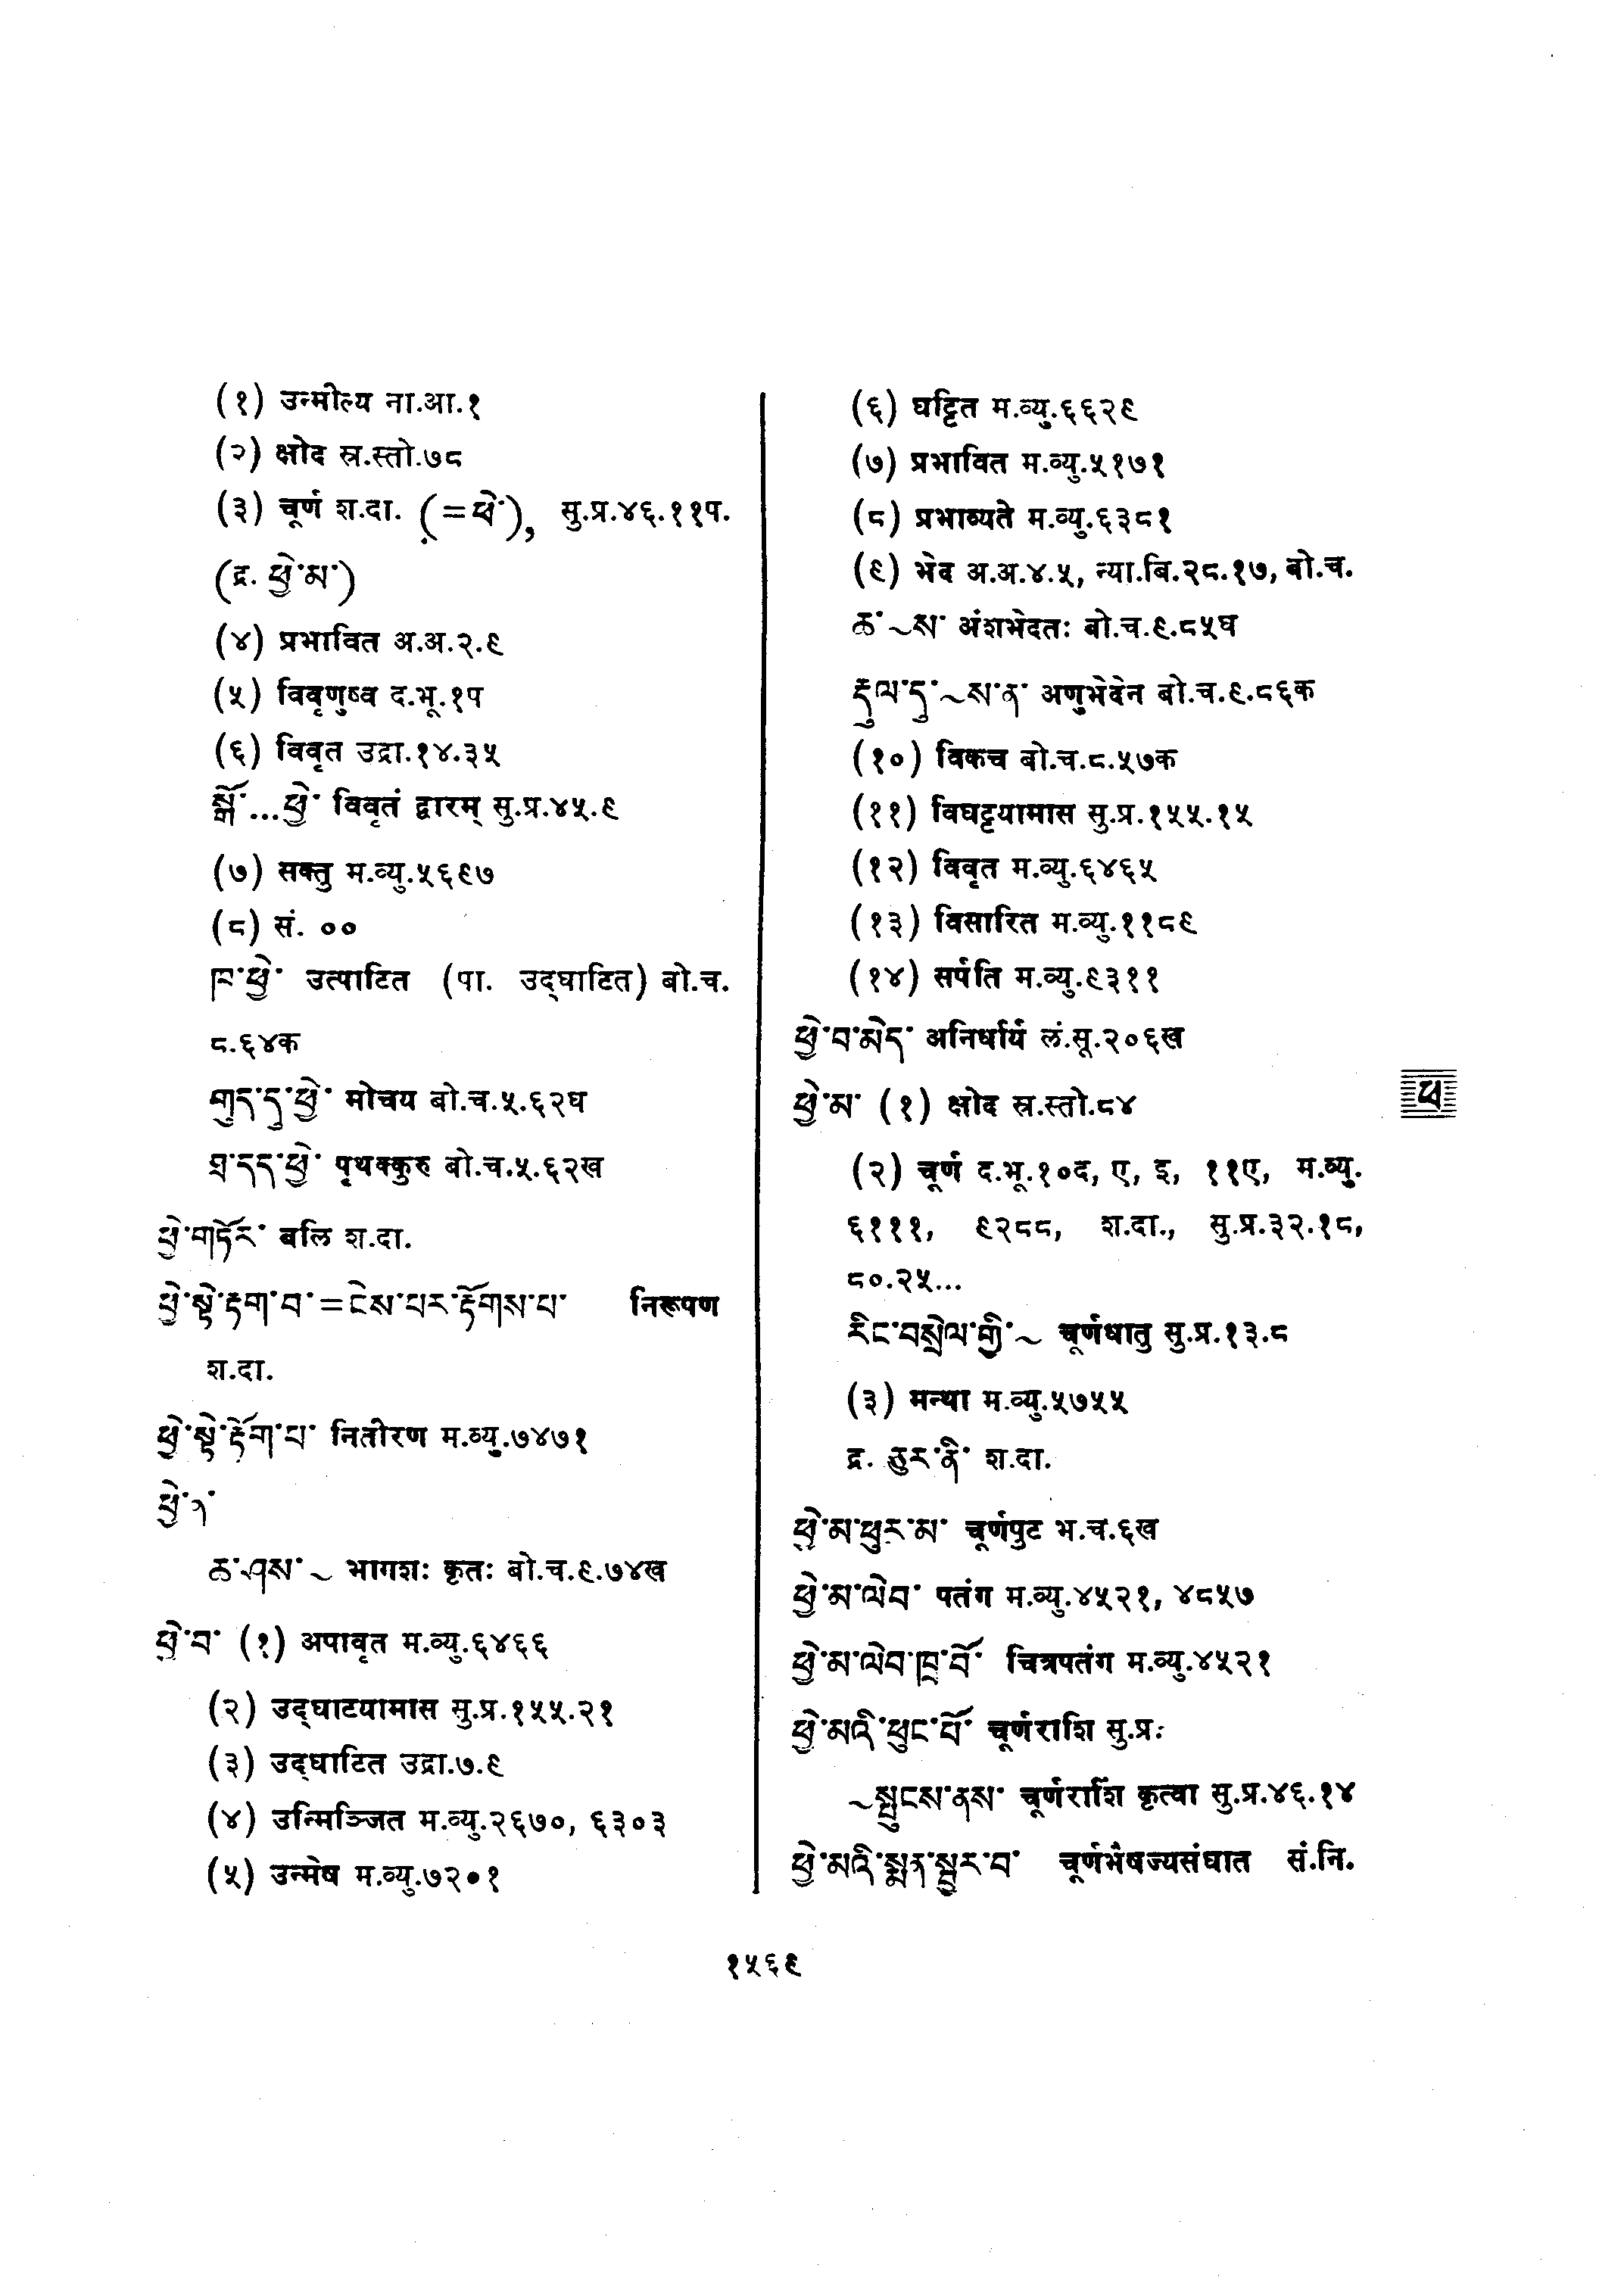 (१) उन्मील्य ना.आ.१
(२) क्षोद स्र.स्तो.७८
(३) चूर्ण श.दा. (=ཕྱེ་), सु.प्र.४६.११प.
(द्र. ཕྱེ་མ་)
(४) प्रभावित अ.अ.२.९
(५) विवृणुष्व द.भू.१प
(६) विवृत उद्रा.१४.३५
སྒོ་...ཕྱེ་ विवृतं द्वारम् सु.प्र.४५.९
(७) सक्तु म.व्यु.५६९७
(८) सं. ००
ཁ་ཕྱེ་ उत्पाटित (पा. उद्घाटित) बो.च.
८.६४क
གུད་དུ་ཕྱེ་ मोचय बो.च.५.६२घ
ཐ་དད་ཕྱེ་ पृथक्कुरु बो.च.५.६२ख
ཕྱེ་གཏོར་ बलि श.दा.
ཕྱེ་སྟེ་རྟག་བ་=ངེས་པར་རྟོགས་པ་ निरूपण
श.दा.
ཕྱེ་སྟེ་རྟོག་པ་ नितीरण म.व्यु.७४७१
ཕྱེ་ད་
ཆ་ཤས་ ~ भागशः कृतः बो.च.९.७४ख
ཕྱེ་བ་ (१) अपावृत म.व्यु.६४६६
(२) उद्घाटयामास सु.प्र.१५५.२१
(३) उद्घाटित उद्रा.७.९
(४) उन्मिञ्जित म.व्यु.२६७०, ६३०३
(५) उन्मेष म.व्यु.७२०१
(६) घट्टित म.व्यु.६६२९
(७) प्रभावित म.व्यु.५१७१
(८) प्रभाव्यते म.व्यु.६३८१
(९) भेद अ.अ.४.५, न्या.बि.२८.१७, बो.च.
ཆ་ ~ས་ अंशभेदतः बो.च.९.८५घ
རྡུལ་དུ་ ~ས་ན་ अणुभेदेन बो.च.९.८६क
(१०) विकच बो.च.८.५७क
(११) विघट्टयामास सु.प्र.१५५.१५
(१२) विवृत म.व्यु.६४६५
(१३) विसारित म.व्यु.११८९
(१४) सर्पति म.व्यु.९३११
ཕྱེ་བ་མེད་ अनिर्धार्य लं.सू.२०६ख
ཕྱེ་མ་ (१) क्षोद स्र.स्तो.८४
ཕ
(२) चूर्ण द.भू.१०द, ए, इ, ११ए, म.व्यु.
६१११, ९२८८, श.दा., सु.प्र.३२.१८,
८०.२५...
རིང་བསྲེལ་གྱི་ ~ चूर्णधातु सु.प्र.१३.८
(३) मन्था म.व्यु.५७५५
द्र. ཅུར་ནི་ श.दा.
ཕྱེ་མ་ཕུར་མ་ चूर्णपुट भ.च.६ख
ཕྱེ་མ་ལེབ་ पतंग म.व्यु.४५२१, ४८५७
ཕྱེ་མ་ལེབ་ཁྲ་བོ་ चित्रपतंग म.व्यु.४५२१
ཕྱེ་མའི་ཕུང་པོ་ चूर्णराशि सु.प्र.
~སྤུངས་ནས་ चूर्णराशिं कृत्वा सु.प्र.४६.१४
ཕྱེ་མའི་སྨན་སྦྱར་བ་ चूर्णभैषज्यसंघात सं.नि.
१५६९